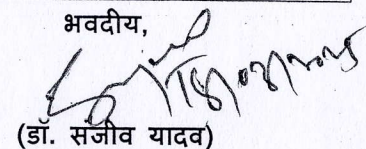 भवदीय,
(डॉ. संजीव यादव)